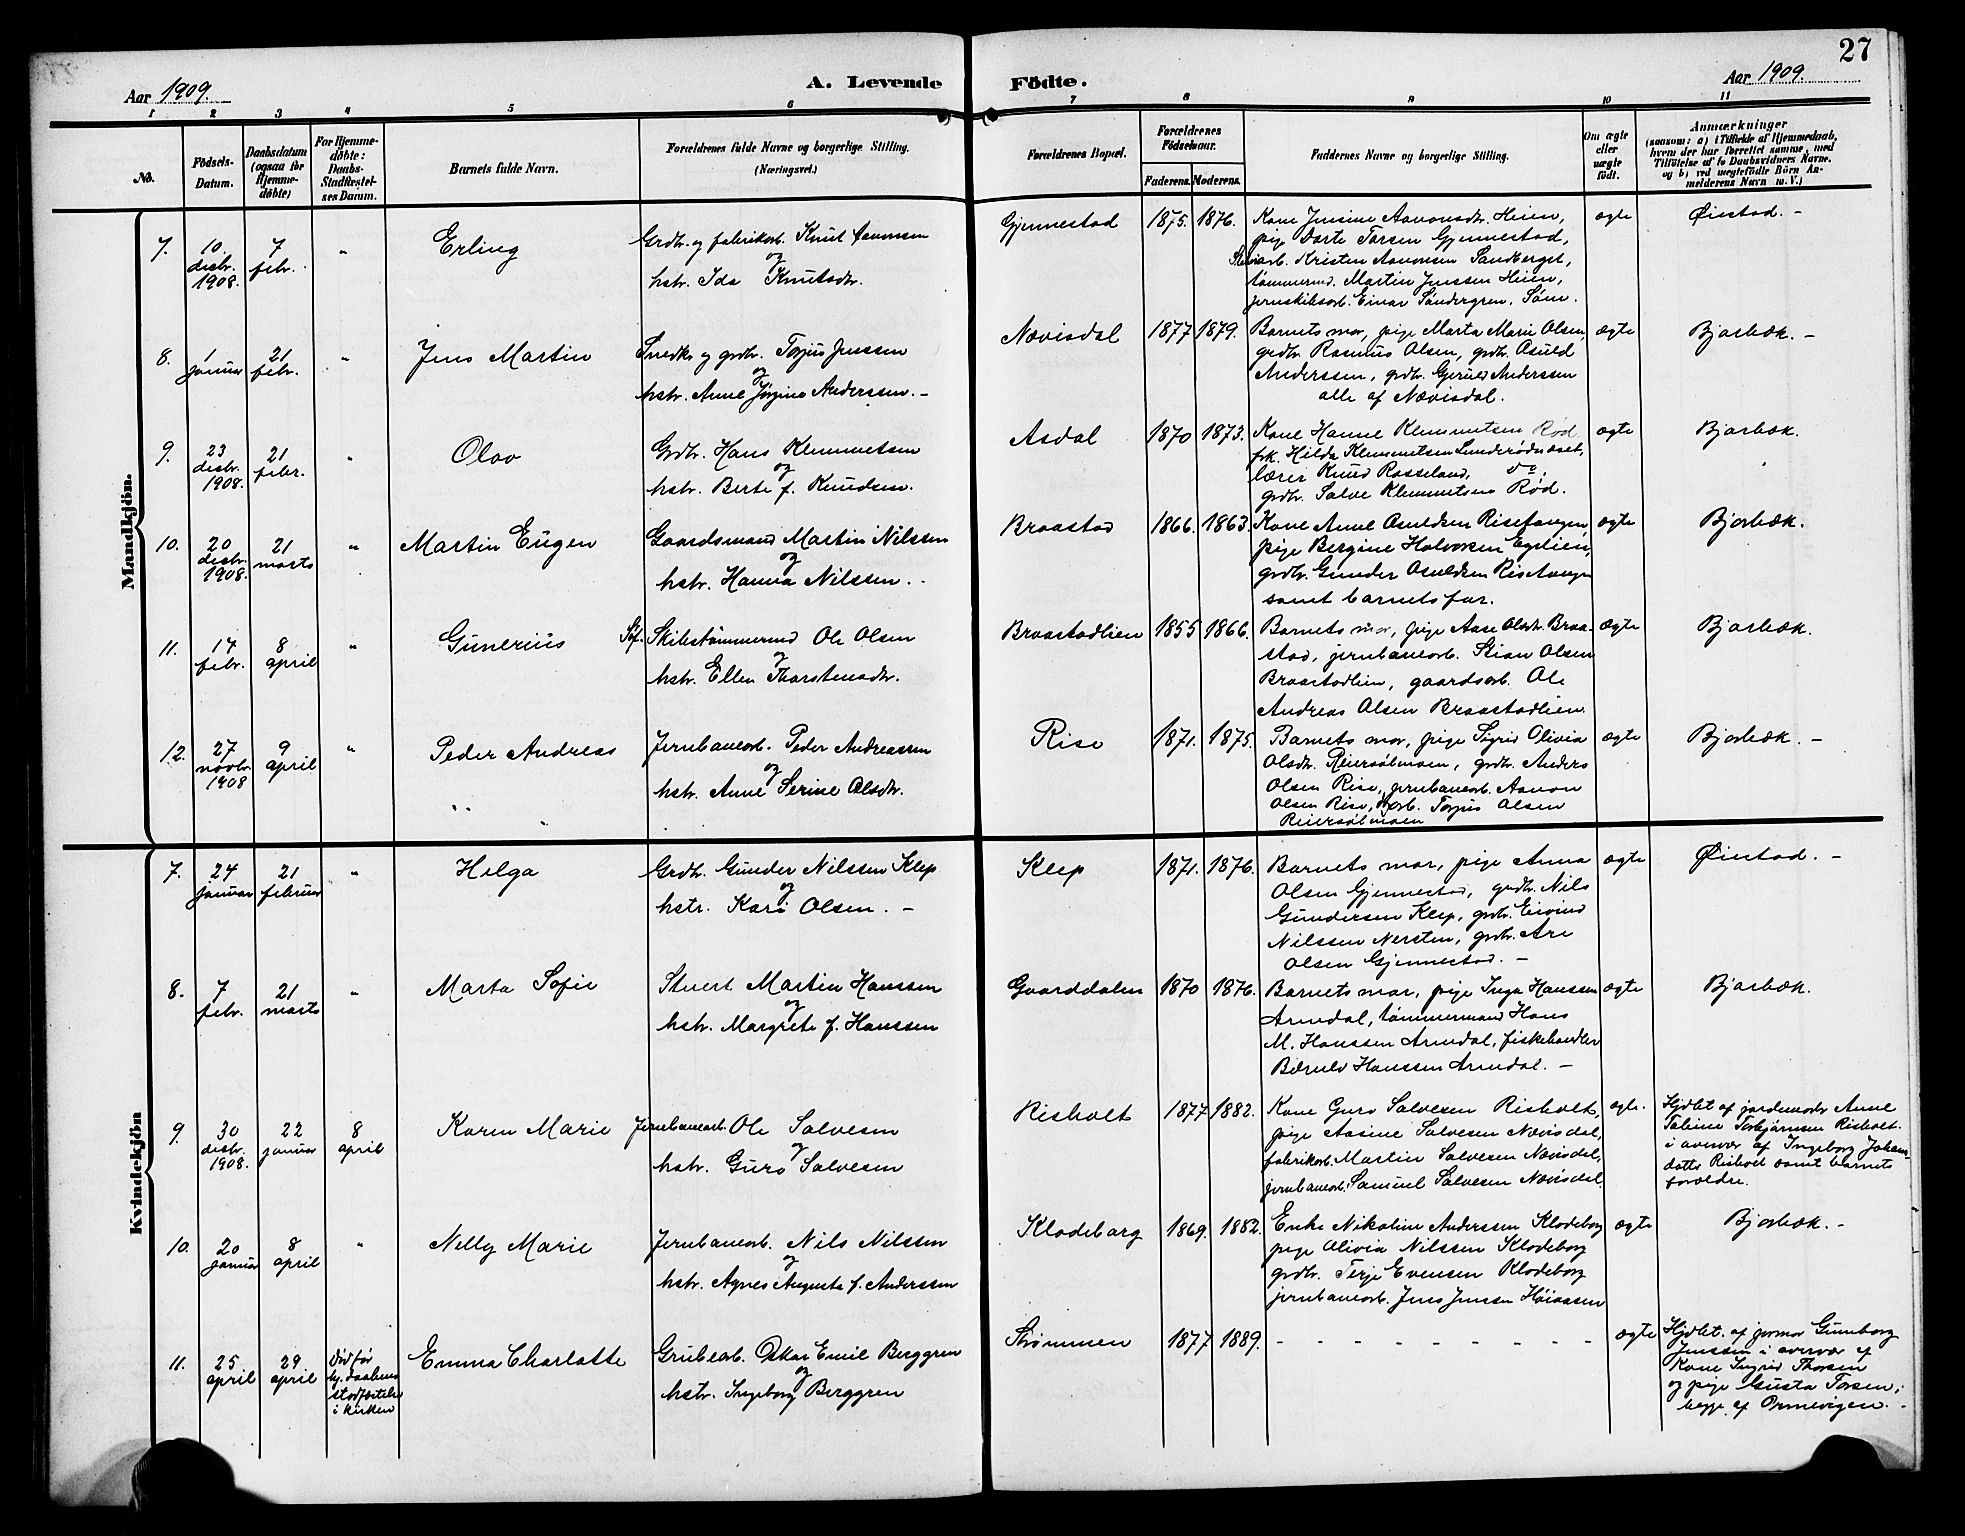 27
Aar 1909.
A. Levende
Födte.
Aar 1909.
1 2 3 4 5 6 7 8 9 10 11
No.
Födsels-
Datum.
Daabsdatum
(ogsaa for
Hjemme-
døbte)
For Hjemme-
döbte:
Daabs-
Stadfæstel-
ses Datum.
Barnets fulde Navn.
Forældrenes fulde Navne og borgerlige Stilling.
(Næringsvei.)
Forældrenes Bopæl.
Forældrenes
Födselsaar.
Faderens. Moderens.
Faddernes Navne og borgerlige Stilling.
Om ægte
eller
uægte
født.
Anmærkninger
(saasom: a) i Tilfælde af Hjemmedaab,
hvem der har forrettet samme, med
Tilføielse af to Daabsvidners Navne,
og b) ved uægtefødte Börn An-
melderens Navn m. V.)
Mandkjön.
7. 10. desbr. 1908. 7 febr. " Erling
Grdbr. og fabrikarb. Knut Aanonsen
og
hstr. Ida Knutsdtr.
Gjennestad 1875. 1876.
Kone Jensine Aanonsdr. Heien,
pige Dorte Torsen Gjennestad,
Stenarb. Kristen Aanonsen Sandberget,
tømmermd. Martin Jenssen Heien,
jernskibsarb. Einar Søndergren, Søm.
ægte Øiestad. -
8. 1 januar 21 febr. " Jens Martin
Snedker og grdbr. Torjus Jenssen
og
hstr. Anne Jørgine Anderssen. -
Nævisdal 1877 1879.
Barnets mor, pige Marta Marie Olsen,
grdbr. Rasmus Olsen, grdbr. Osuld
Anderssen, grdbr. Gjeruld Anderssen
alle af Nævisdal.
ægte Bjorbæk. -
9. 23 desbr. 1908. 21 febr. " Olav
Grdbr. Hans Klemmetsen
og
hstr. Berte f. Knudsen.
Asdal 1870 1873.
Kone Hanne Klemmetsen Rød
frk. Hilda Klemmetsen Lunderødnæset,
lærer Knud Rosseland, do,
grdbr. Salve Klemmetsen Rød.
ægte Bjorbæk.
10. 20 desbr. 1908. 21 marts " Martin Eugen
Gaardsmand Martin Nilssen
og
hstr. Hanna Nilssen. -
Braastad 1866. 1863.
Kone Anne Osuldsen Risetangen
pige Bergine Halvorsen Eqelien,
grdbr. Gunder Osuldsen Risetangen
samt barnets far.
ægte Bjorbæk.
11. 14 febr. 8 april " Gunerius
Skibstømmermd Ole Olsen
og
hstr. Ellen Thorstensdtr.
Braastadlien 1855 1866.
Barnets mor, pige Aase Olsdtr. Braa-
stad, jernbanearb. Stian Olsen
Braastadlien, gaardsarb. Ole
Andreas Olsen Braastadlien.
ægte Bjorbæk.
12. 27 novbr. 1908 9 april " Peder Andreas
Jernbanearb. Peder Andreassen
og
hstr. Anne Serine Olsdtr.
Rise 1871. 1875.
Barnets mor, pige Sigrid Olivia
Olsdtr. Reiersølmoen, grdbr. Anders
Olsen Rise, jernbanearb. Aanon
Olsen Rise, Torjus Olsen
Reiersølmoen
ægte Bjorbæk. -
Kvindekjön
7. 24 januar 21 februar " Helga
Grdbr. Gunder Nilssen Klep
og
hstr. Kari Olsen. -
Klep 1871. 1876.
Barnets mor, pige Anna
Olsen Gjennestad, grdbr. Nils
Gundersen Klep, grdbr. Eivind
Nilssen Nersten, grdbr. Are
Olsen Gjennestad. -
ægte Øiestad. -
8. 7 febr. 21 marts " Marta Sofie
Stuert Martin Hanssen
og
hstr. Margrete f. Hanssen
Gaarddalen 1870 1876.
Barnets mor, pige Inga Hanssen
Arendal, tømmermand Hans
M. Hanssen Arendal, fiskehandler
Bernld Hanssen Arendal. -
ægte Bjorbæk.
9. 30 desbr. 1908. 22 januar 8 april Karen Marie
Jernbanearb. Ole Salvesen
og
hstr. Guro Salvesen
Risholt 1877 1882.
Kone Guro Salvesen Risholt,
pige Aasine Salvesen Nævisdal,
fabrikarb. Martin Salvesen Nævisdal,
jernbanearb. Samuel Salvesen Nævisdal.
ægte.
Hjdbt. af jordemoder Anne
Taline Torbjørnsen Risholt.
i overvær af Ingeborg Johans-
datter Risholt samt barnets
forældre.
10. 20 januar 8 april " Nelly Marie
Jernbanearb. Nils Nilssen
og
hstr. Agnes Augusta f. Anderssen
Klodeborg 1869. 1882.
Enke Nikoline Anderssen Klodeborg
pige Olivia Nilssen Klodeborg
grdbr. Terje Evensen Klodeborg
jernbanearb. Jens Jenssen Høiaasen
ægte Bjorbæk. -
11. 25 april 29 april
Død før
hj. daabens
stadfæstelse
i kirken
Emma Charlotte
Grubearb. Oskar Emil Berggren
og
hstr. Ingeborg Berggren
Strømmen 1877 1889.
- - - - - - - -
ægte
Hjdbt. af jormor Gunnborg
Jenssen i overvær af
Kone Ingrid Thorsen
og pige Gusta Torsen,
begge af Ormevigen. -